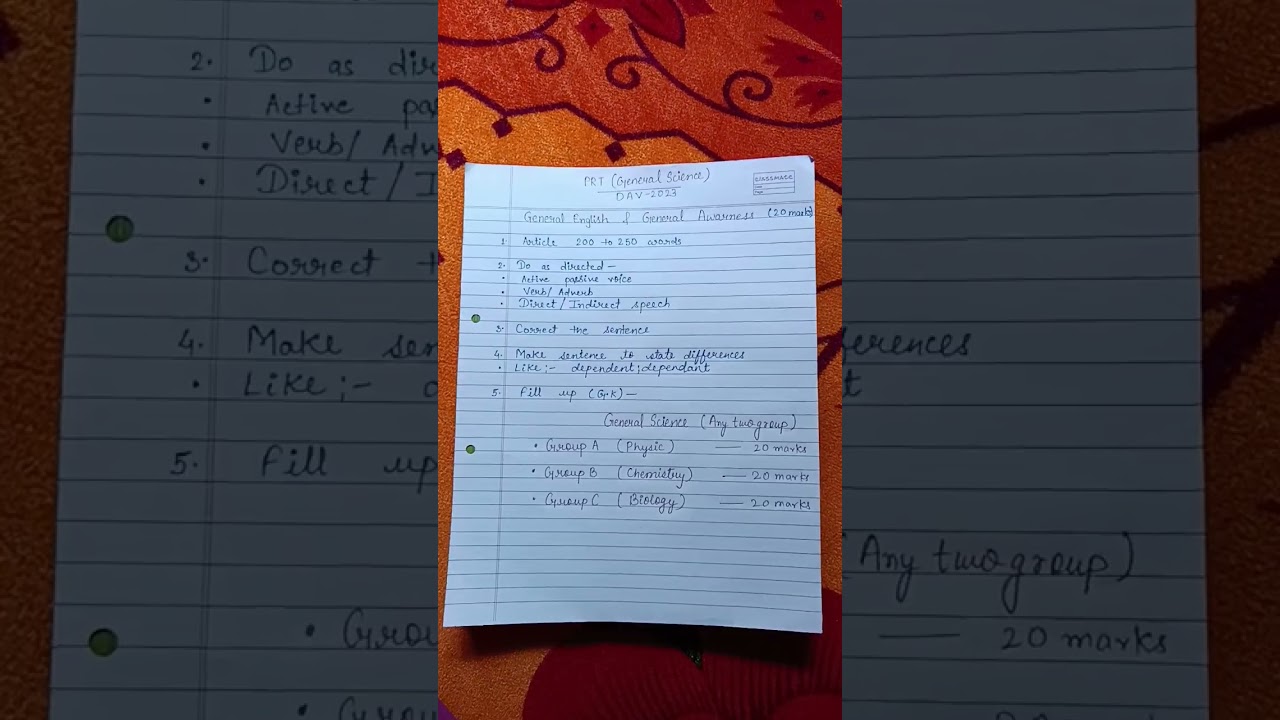 PRT (General Science)
DAV-2023
CLASSMATE
General English & General Awarness (20 marks)
1. Article 200 to 250 words
2. Do as directed -
• Active passive voice
• Verb/ Adverb
• Direct / Indirect speech
3. Correct the sentence
4. Make sentence to state differences
• Like ;- dependent ; dependant
5. Fill up (G.K) -
General Science (Any two group)
• Group A (Physic) — 20 marks
• Group B (Chemistry) — 20 marks
• Group C (Biology) — 20 marks